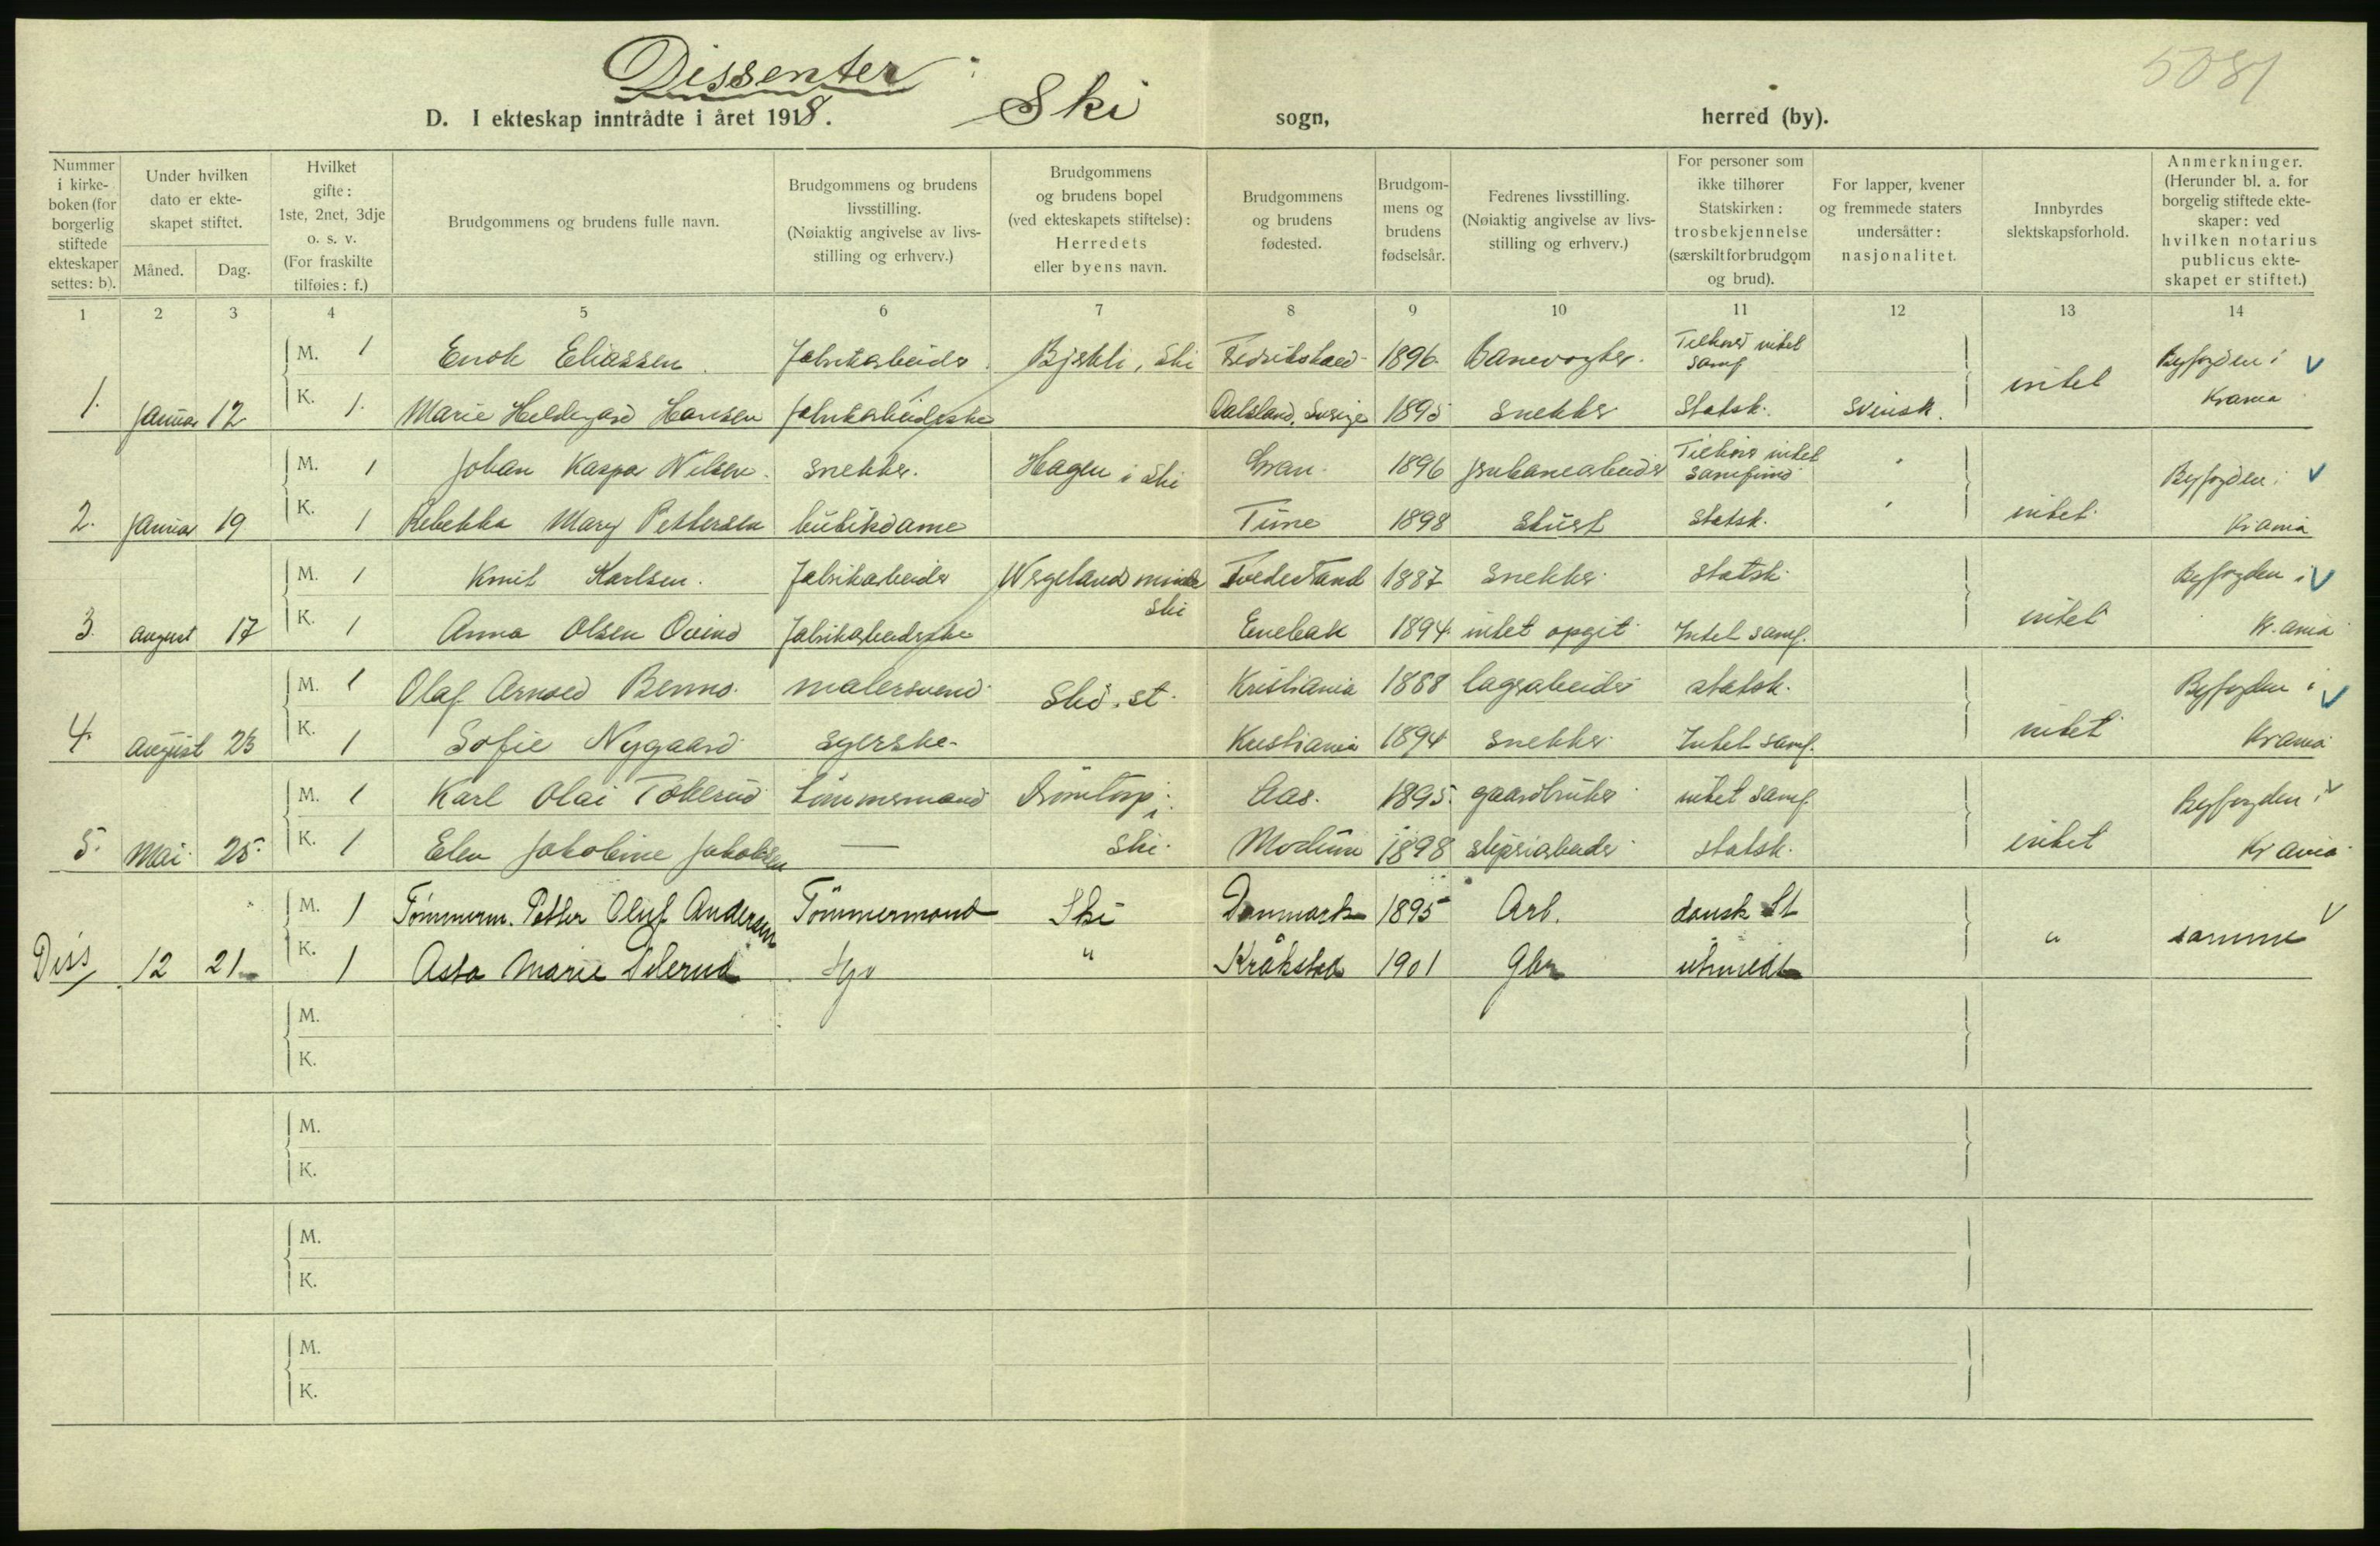 Dissenter:
5081
D. I ekteskap inntrådte i året 1918. Ski sogn, herred (by).
Nummer i kirke-boken (for borgerlig stiftede ekteskaper settes: b).
Under hvilken dato er ekte-skapet stiftet.
Måned. Dag.
Hvilket gifte: 1ste, 2net, 3dje o. s. v. (For fraskilte tilføies: f.)
Brudgommens og brudens fulle navn.
Brudgommens og brudens livsstilling. (Nøiaktig angivelse av livs-stilling og erhverv.)
Brudgommens og brudens bopel (ved ekteskapets stiftelse): Herredets eller byens navn.
Brudgommens og brudens fødested.
Brudgom-mens og brudens fødselsår.
Fedrenes livsstilling. (Nøiaktig angivelse av livs-stilling og erhverv.)
For personer som ikke tilhører Statskirken: trosbekjennelse (særskilt for brudgom og brud).
For lapper, kvener og fremmede staters undersåtter: nasjonalitet.
Innbyrdes slektskapsforhold.
Anmerkninger. (Herunder bl. a. for borgelig stiftede ekte-skaper: ved hvilken notarius publicus ekte-skapet er stiftet.)
1 2 3 4 5 6 7 8 9 10 11 12 13 14
M. 1 Enok Eliassen. fabrikarbeider. Bjskli, Ski Fredrikshald 1896. Banevogter. Tilhører intet samf Byfogden i
1. januar 12 K. 1. Marie Hildegard Hansen fabrikarbeiderske Dalsland, Sverige 1895 snekker Statsk. svensk. intet Krania
M. 1 Johan Kaspar Nilsen. snekker. Hagen i Ski Gran. 1896 jernbanearbeider Tilhører intet samfund Byfogden i
2. januar 19 K. 1 Rebekka Mary Pettersen butikdame Tune 1898 skust statsk. intet Krania
M. 1 Knut Karlsen. fabrikarbeider Wergelands minde Ski Tvedestrand 1887 snekker statsk Byfogden i
3. august 17 K. 1 Anna Olsen Oeind fabrikarbeiderske Enebak 1894. intet opgit Intet samf. intet Kr.ania
M. 1 Olaf Arnold Benno. malersvend Ski. st. Kristiania 1888 lagerarbeider statsk. Byfogden i
4. august 23 K. 1 Sofie Nygaard syerske. Kristiania 1894 snekker Intet samf. intet Krania
M. 1 Karl Olai Tokerud tømmermand Drømtorp i Ski. Aas. 1895. gaardbruker intet samf. Byfogden i
5. mai 25. K. 1 Elen Jakobine Jakobsen — Modum 1898 sliperiarbeider statsk. intet Krania
M. 1 Tømmerm. Petter Oluf Andersen Tømmermand Ski Danmark 1895 Arb. dansk St
Diss 12 21 K. 1 Asta Marie Silerud Hjv " Kråkstad 1901 Gbr utmeldt " samme
M.
K.
M.
K.
M.
K.
M.
K.